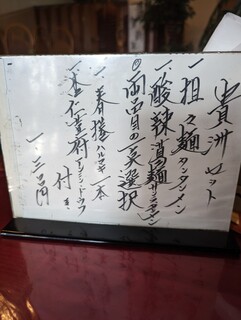 貴洲セット
一.担々麺 タンタンメン
一.酸辣湯麺 サンラータンメン
◎両品の一品選択
一.春捲 ハルマキ 一本
一.杏仁豆府 アンニンドウフ 付き
一.三〇〇円